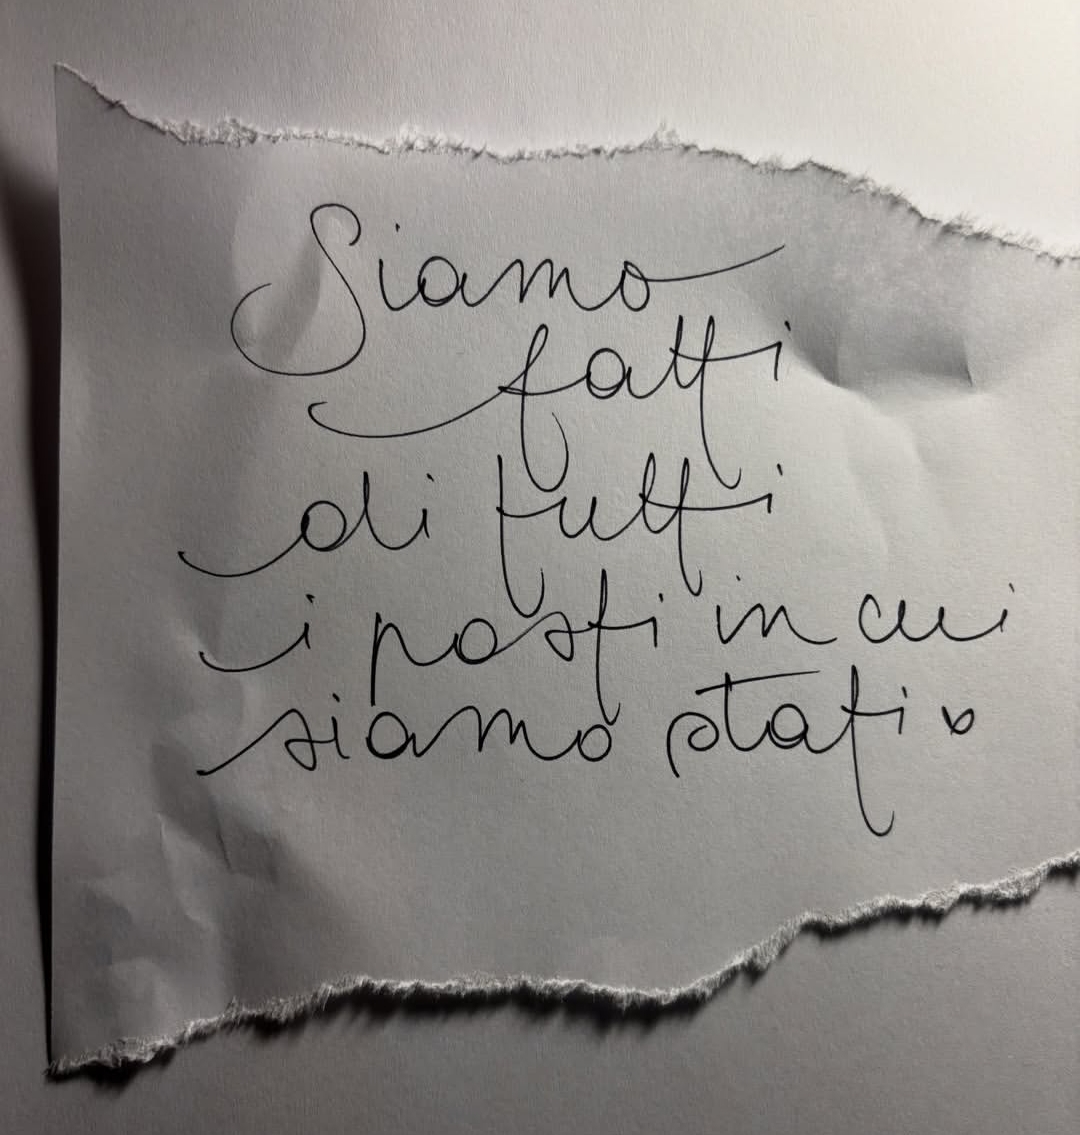 Siamo
fatti
di tutti
i posti in cui
siamo stati